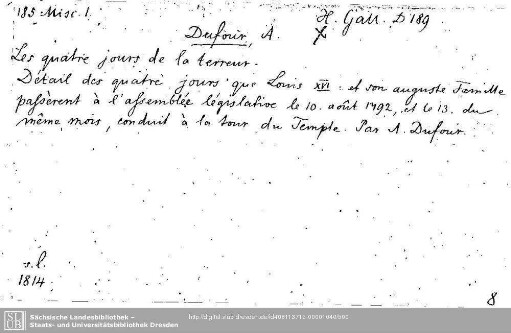 185 Misc. 1.
H. Gall. D 189
X
Dufour, A.
Les quatre jours de la terreur.
Détail des quatre jours que Louis XVI. et son auguste Famille
passèrent à l'assemblée législative le 10. août 1792, et le 13. du
même mois, conduit à la tour du Temple. Par A. Dufour.
s. l.
1814.
8
SLUB
Sächsische Landesbibliothek –
Staats- und Universitätsbibliothek Dresden